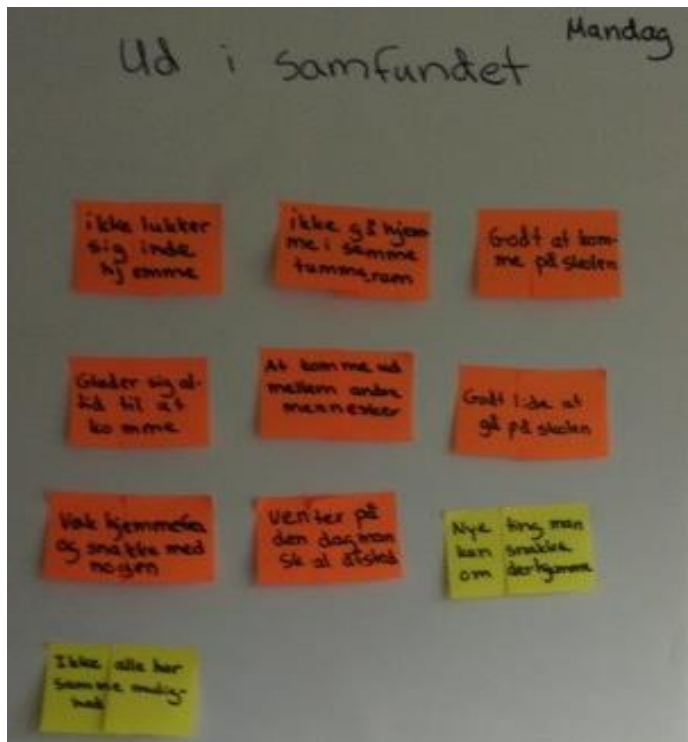 Mandag
Ud i samfundet
ikke lukker
sig inde
hjemme
ikke gå hjem-
me i samme
tummerum
Godt at kom-
me på skolen
Glæder sig al-
tid til at
komme
At komme ud
mellem andre
mennesker
Godt lide at
gå på skolen
Væk hjemmefra
og snakke med
nogen
Venter på
den dag man
skal afsted
Nye ting man
kan snakke
om derhjemme
Ikke alle har
samme mulig-
hed